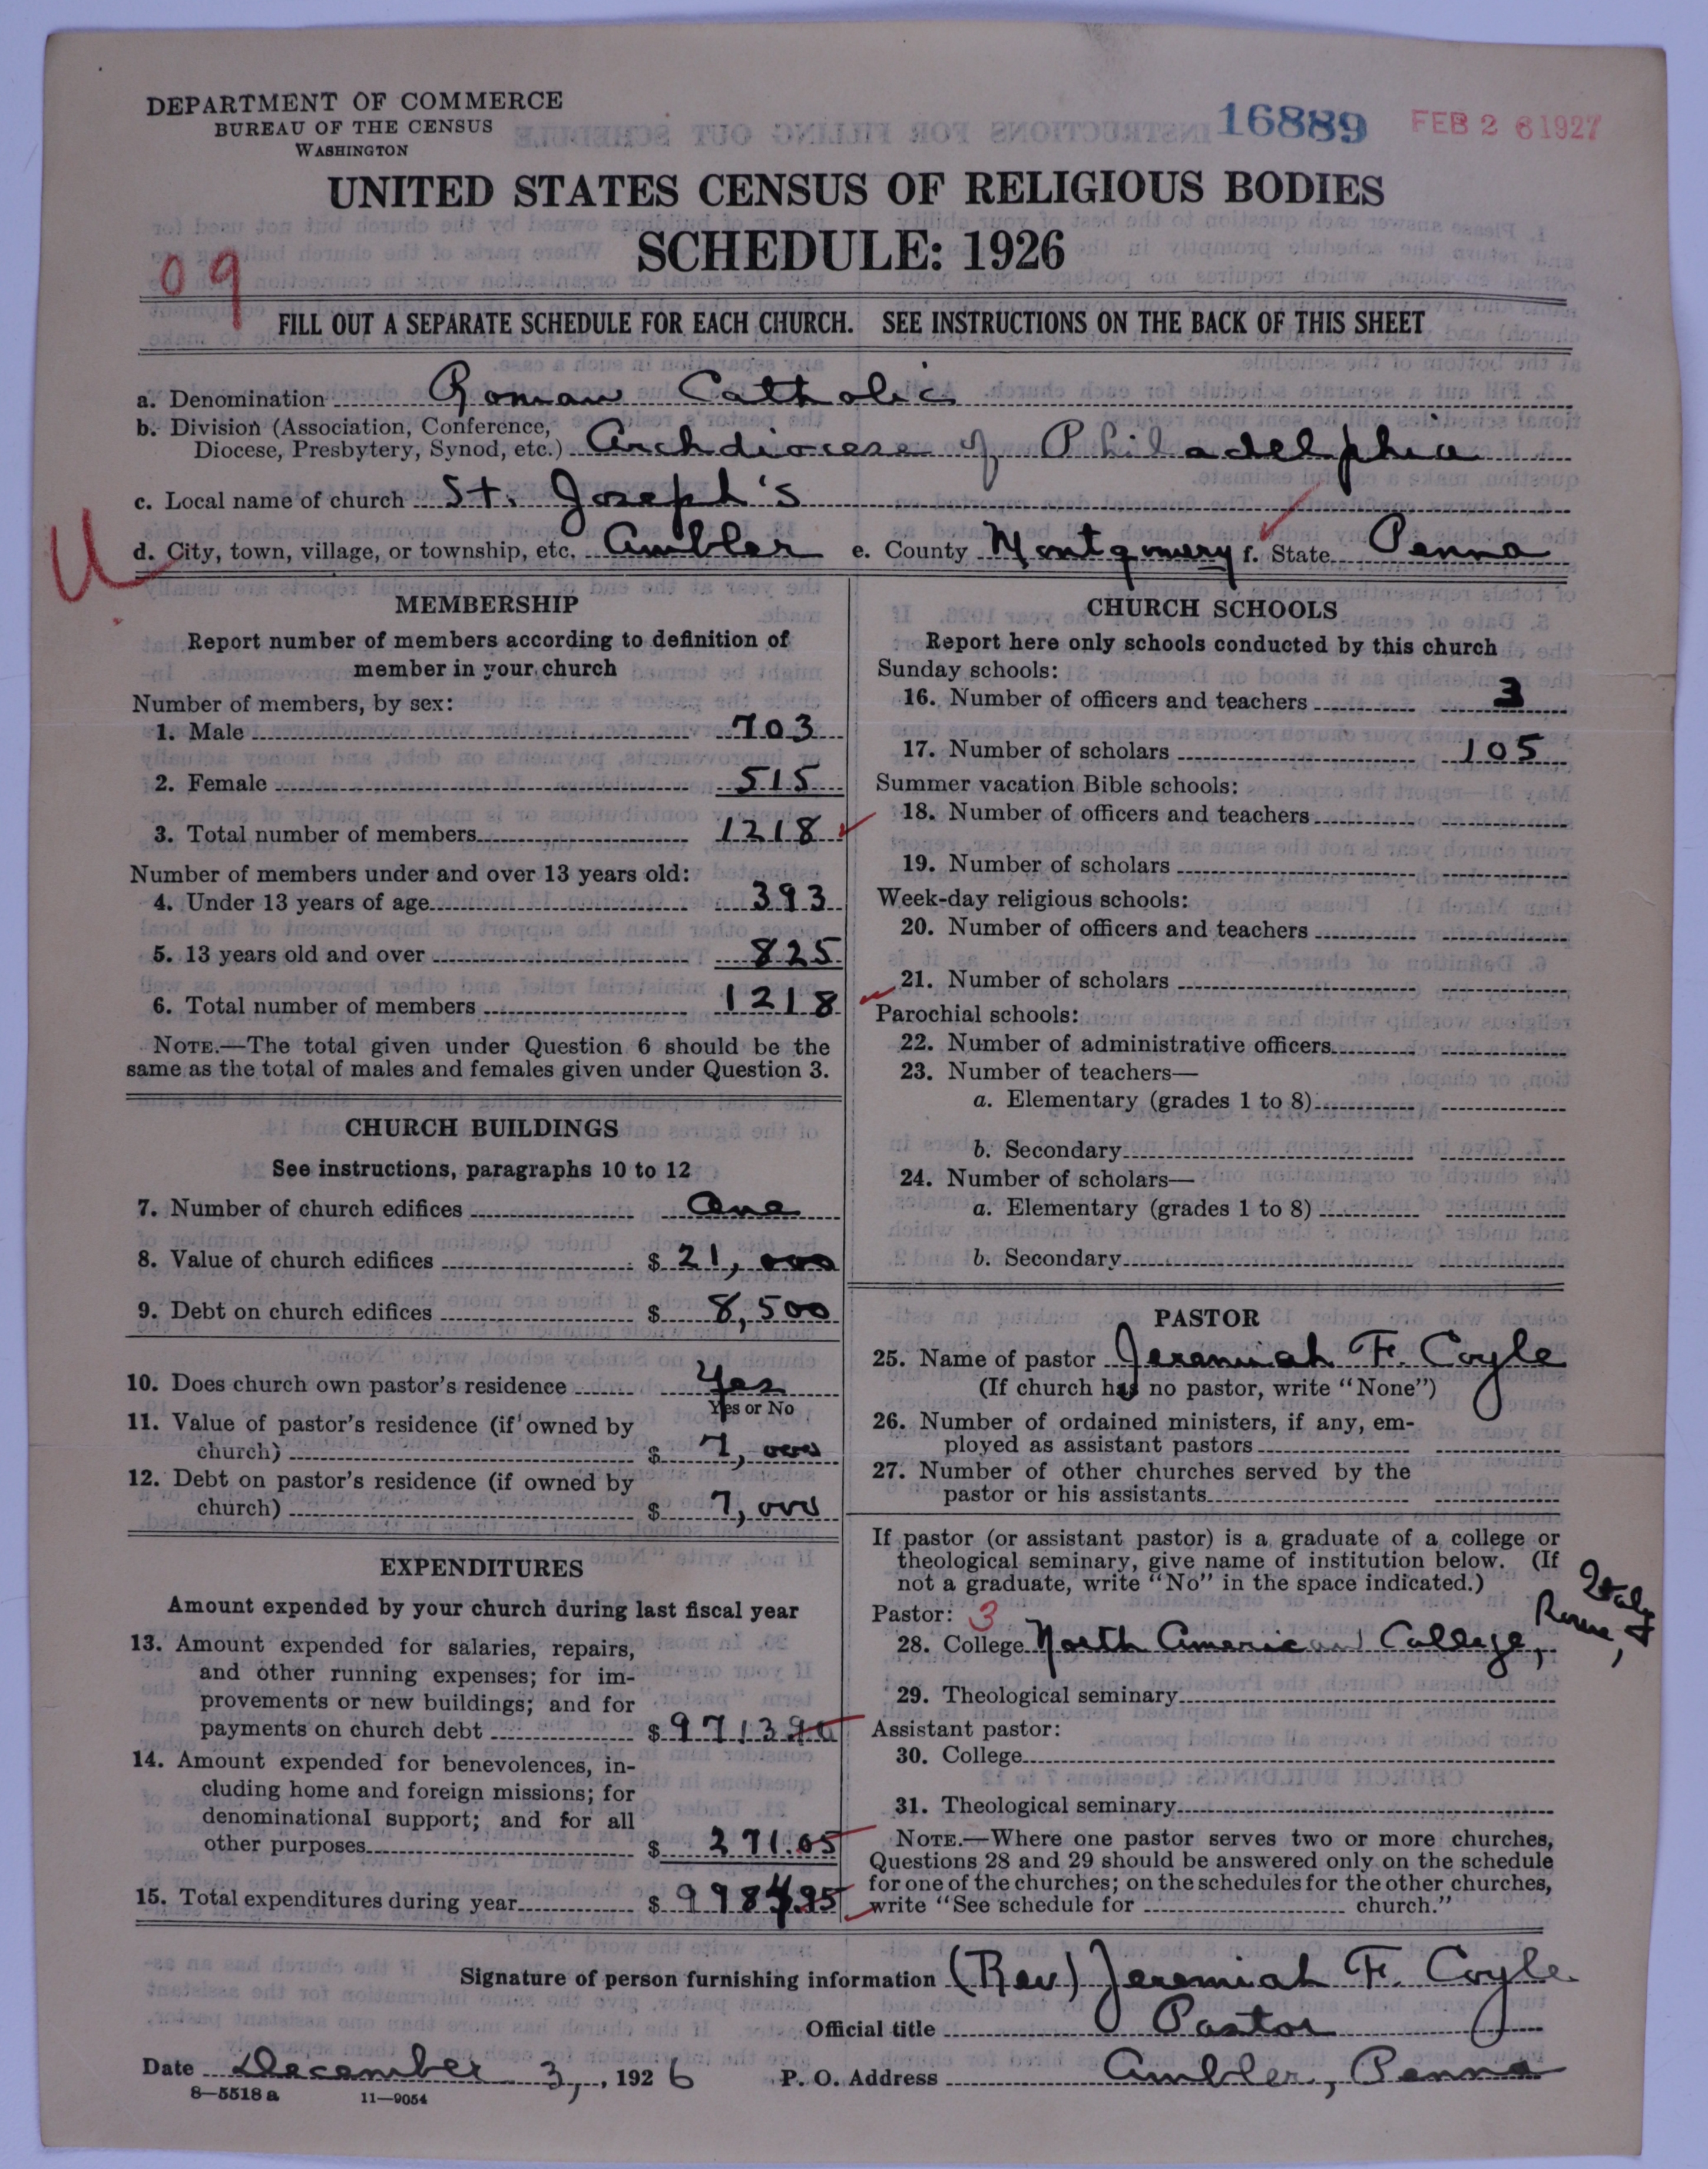 DEPARTMENT OF COMMERCE
BUREAU OF THE CENSUS
WASHINGTON
16889 FEB 26 1927
UNITED STATES CENSUS OF RELIGIOUS BODIES
SCHEDULE: 1926
09
FILL OUT A SEPARATE SCHEDULE FOR EACH CHURCH. SEE INSTRUCTIONS ON THE BACK OF THIS SHEET
a. Denomination Roman Catholic
b. Division (Association, Conference, Diocese, Presbytery, Synod, etc.) Archdiocese of Philadelphia
c. Local name of church St. Joseph's
d. City, town, village, or township, etc. Ambler e. County Montgomery f. State Penna
MEMBERSHIP
Report number of members according to definition of
member in your church
Number of members, by sex:
1. Male 703
2. Female 515
3. Total number of members 1218
Number of members under and over 13 years old:
4. Under 13 years of age 393
5. 13 years old and over 825
6. Total number of members 1218
NOTE.—The total given under Question 6 should be the
same as the total of males and females given under Question 3.
CHURCH BUILDINGS
See instructions, paragraphs 10 to 12
7. Number of church edifices One
8. Value of church edifices $ 21,000
9. Debt on church edifices $ 8,500
10. Does church own pastor's residence Yes
Yes or No
11. Value of pastor's residence (if owned by
church) $ 7,000
12. Debt on pastor's residence (if owned by
church) $ 7,000
EXPENDITURES
Amount expended by your church during last fiscal year
13. Amount expended for salaries, repairs,
and other running expenses; for im-
provements or new buildings; and for
payments on church debt $ 971390
14. Amount expended for benevolences, in-
cluding home and foreign missions; for
denominational support; and for all
other purposes $ 271.05
15. Total expenditures during year $ 9984.95
CHURCH SCHOOLS
Report here only schools conducted by this church
Sunday schools:
16. Number of officers and teachers 3
17. Number of scholars 105
Summer vacation Bible schools:
18. Number of officers and teachers
19. Number of scholars
Week-day religious schools:
20. Number of officers and teachers
21. Number of scholars
Parochial schools:
22. Number of administrative officers
23. Number of teachers—
a. Elementary (grades 1 to 8)
b. Secondary
24. Number of scholars—
a. Elementary (grades 1 to 8)
b. Secondary
PASTOR
25. Name of pastor Jeremiah F. Coyle
(If church has no pastor, write "None")
26. Number of ordained ministers, if any, em-
ployed as assistant pastors
27. Number of other churches served by the
pastor or his assistants
If pastor (or assistant pastor) is a graduate of a college or
theological seminary, give name of institution below. (If
not a graduate, write "No" in the space indicated.)
Pastor: 3
28. College North American College, Rome, Italy
29. Theological seminary
Assistant pastor:
30. College
31. Theological seminary
NOTE.—Where one pastor serves two or more churches,
Questions 28 and 29 should be answered only on the schedule
for one of the churches; on the schedules for the other churches,
write "See schedule for church."
Signature of person furnishing information (Rev) Jeremiah F. Coyle
Official title Pastor
Date December 3, 1926 P. O. Address Ambler, Penna
8—5518 a 11—9054